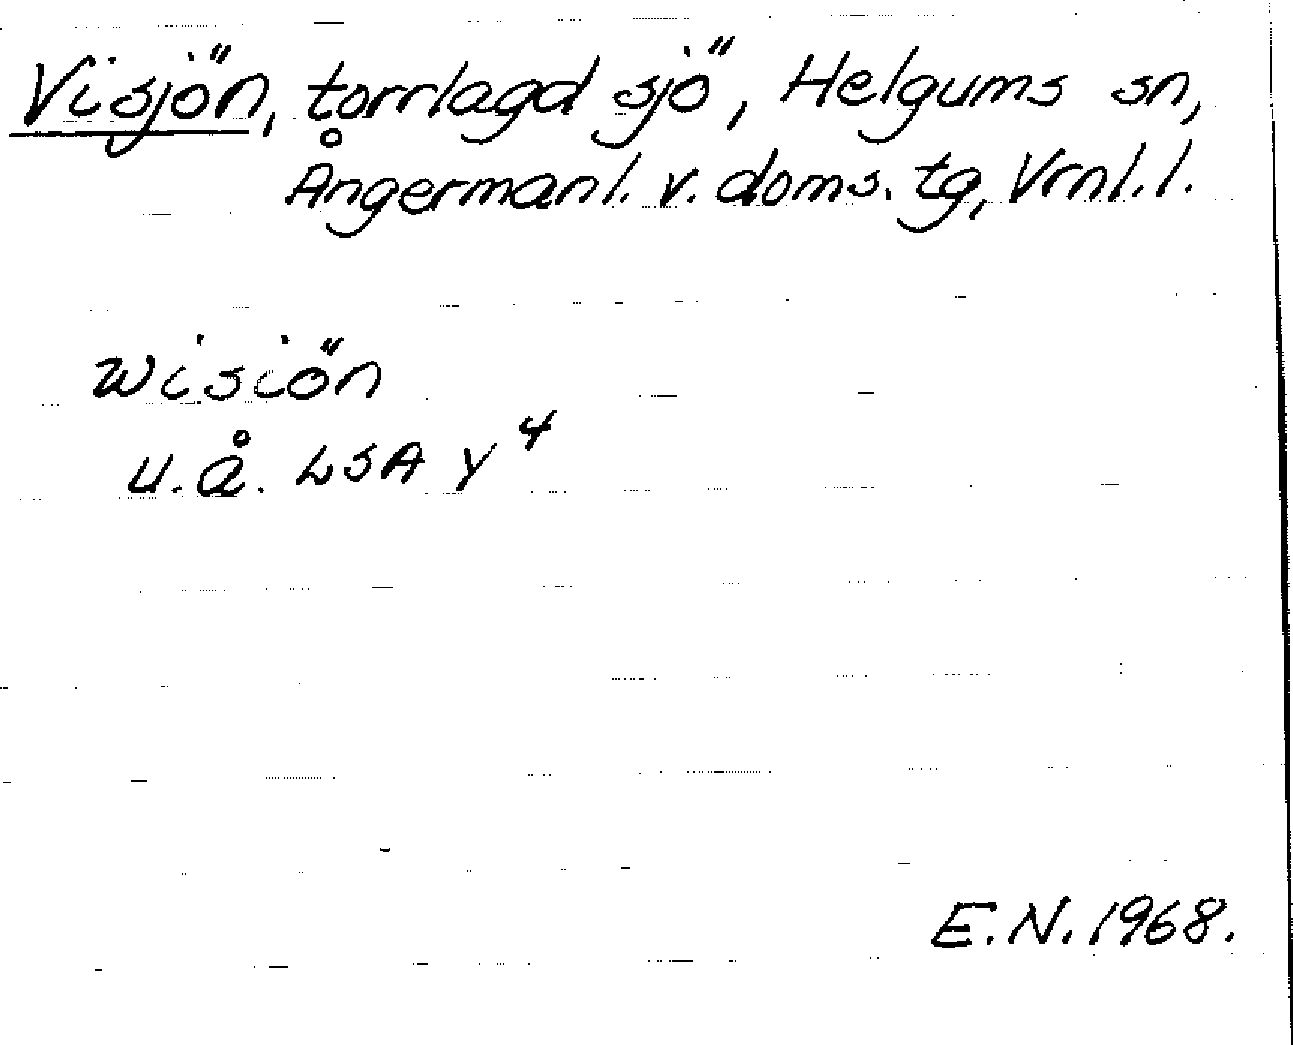 Visjön, torrlagd sjö, Helgums sn,
Ångermanl. v. doms. tg, Vrnl. l.
Wisiön
u.å. LSA Y⁴
E.N. 1968.